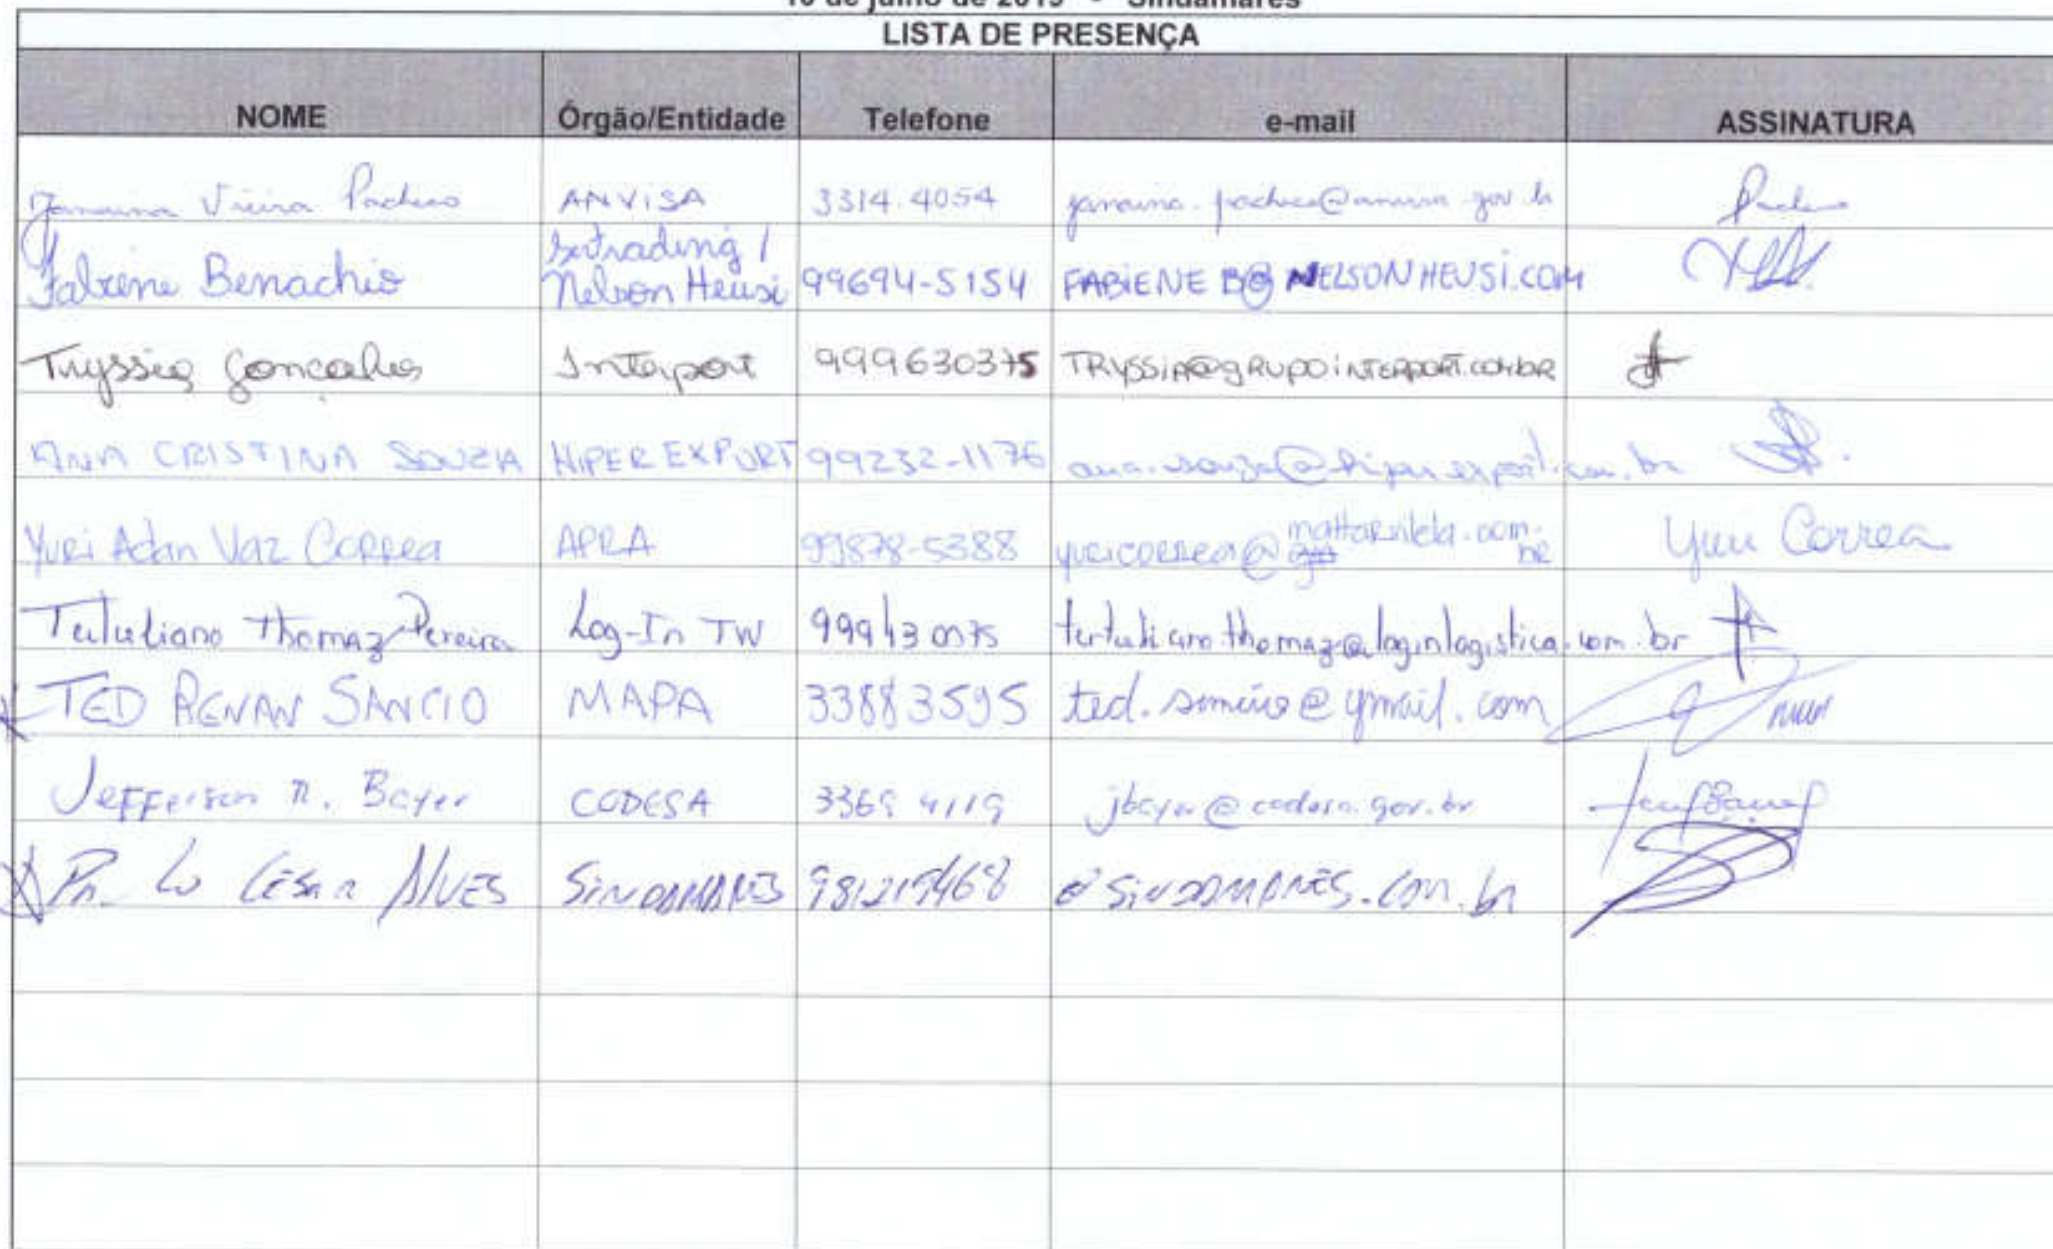 de julho de 2019 - Sindamares
LISTA DE PRESENÇA
NOME Órgão/Entidade Telefone e-mail ASSINATURA
Janaina Vieira Pacheco ANVISA 3314.4054 janaina.pacheco@anvisa.gov.br
Fabiene Benachio Nelson Heusi 99694-5154 FABIENE B@NELSONHEUSI.COM
Tryssia Gonçalves Interport 999630375 TRYSSIA@GRUPOINTERPORT.COM.BR
ANA CRISTINA SOUZA HIPER EXPORT 99232-1176 ana.souza@hiperexport.com.br
Yuri Adan Vaz Correa APRA 99878-5388 yuricorrea@mattarvilela.com.br Yuri Correa
Tertuliano Thomaz Pereira Log-In TW 999430575 tertuliano.thomaz@loginlogistica.com.br
TED RENAN SANCIO MAPA 33883595 ted.sancio@gmail.com
Jefferson R. Bayer CODESA 3369 4119 jbayer@codesa.gov.br
CESAR ALVES SINDAMARES @SINDAMARES.com.br